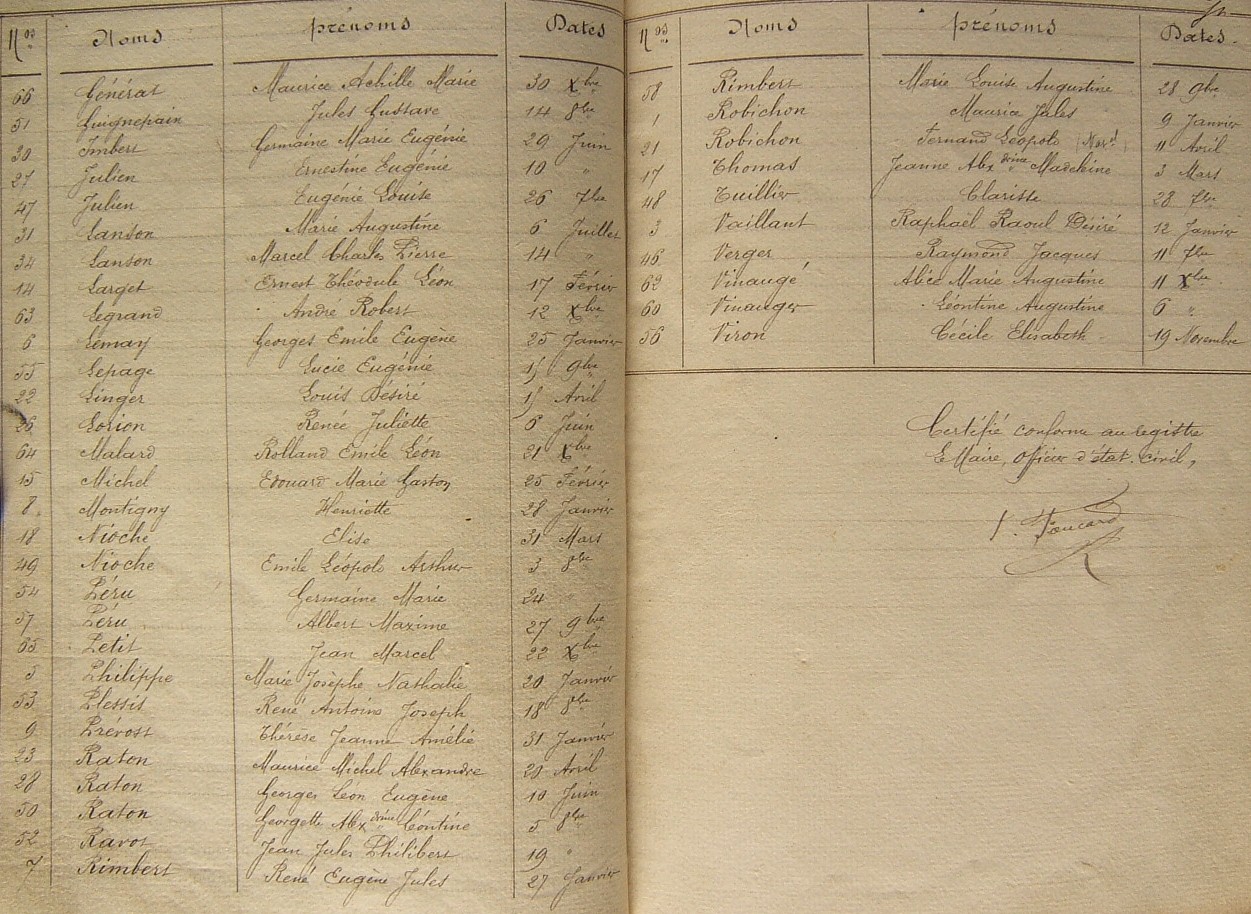 Nos Noms prénoms Dates
66 Générat Maurice Achille Marie 30 Xbre
51 Guignepain Jules Gustave 14 8bre
30 Imbert Germaine Marie Eugénie 29 Juin
27 Julien Ernestine Eugénie 10 "
47 Julien Eugénie Louise 26 7bre
31 Lanson Marie Augustine 6 Juillet
34 Lanson Marcel Charles Pierre 14 "
14 Larget Ernest Théodule Léon 17 Février
63 Legrand André Robert 12 Xbre
6 Lemay Georges Emile Eugène 25 Janvier
55 Lepage Lucie Eugénie 15 9bre
22 Linger Louis Désiré 15 Avril
26 Lorion Renée Juliette 6 Juin
64 Malard Rolland Emile Léon 21 Xbre
15 Michel Edouard Marie Gaston 25 Février
8 Montigny Henriette 28 Janvier
18 Nioche Elise 31 Mars
49 Nioche Emile Léopold Arthur 3 8bre
54 Péru Germaine Marie 24 "
57 Péru Albert Maxime 27 9bre
65 Petit Jean Marcel 22 Xbre
5 Philippe Marie Josèphe Nathalie 20 Janvier
53 Plessis René Antoine Joseph 18 8bre
9 Prévost Thérèse Jeanne Amélie 31 Janvier
23 Raton Maurice Michel Alexandre 20 Avril
28 Raton Georges Léon Eugène 10 Juin
50 Raton Georgette Alexdrine Léontine 5 8bre
52 Ravot Jean Jules Philibert 19 "
7 Rimbert René Eugène Jules 27 Janvier
Nos Noms prénoms Dates
58 Rimbert Marie Louise Augustine 28 9bre
1 Robichon Maurice Jules 9 Janvier
21 Robichon Fernand Léopold 11 Avril
17 Thomas Jeanne Alexdrine Madeleine 3 Mars
48 Tuillier Clarisse 28 7bre
3 Vaillant Raphaël Raoul Désiré 12 Janvier
46 Verger Raymond Jacques 11 7bre
62 Vinaugé Alice Marie Augustine 11 Xbre
60 Vinauger Léontine Augustine 6 "
56 Viron Cécile Elisabeth 19 Novembre
Certifié conforme au registre
Le Maire, officier d'état civil,